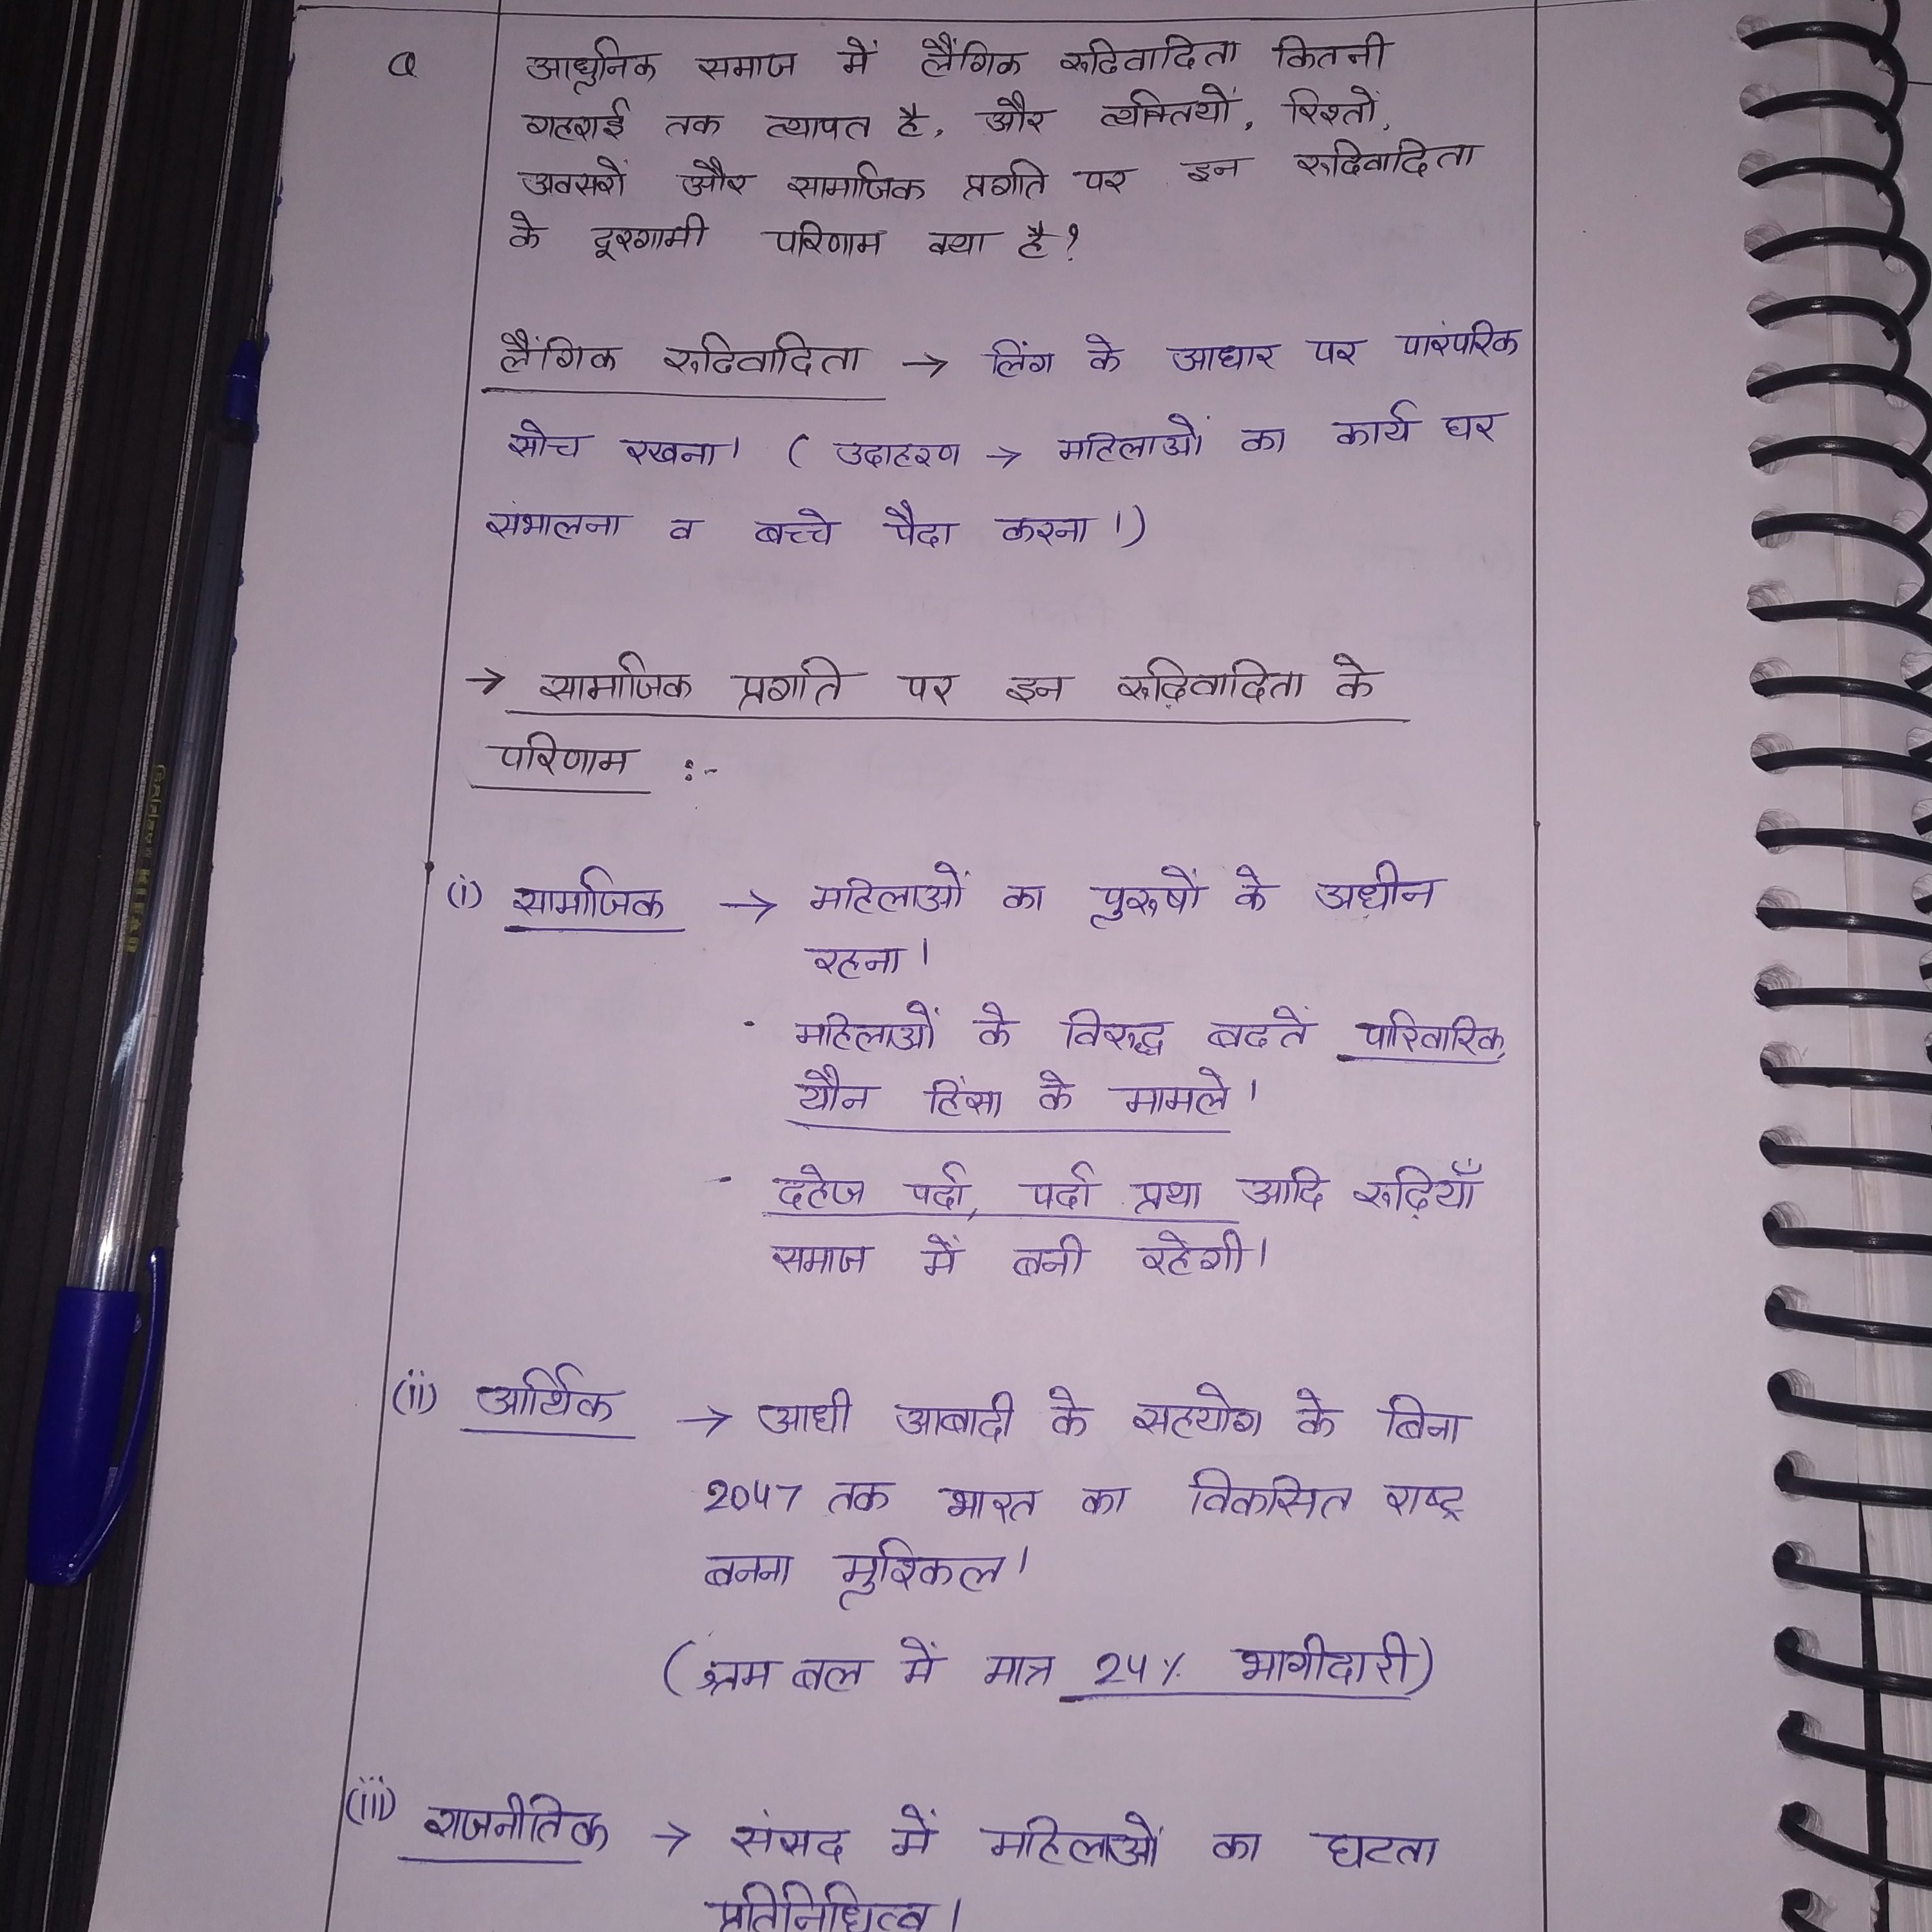 Q आधुनिक समाज में लैंगिक रूढिवादिता कितनी
गहराई तक व्यापत है, और व्यक्तियों, रिश्तों,
अवसरों और सामाजिक प्रगति पर इन रूढिवादिता
के दूरगामी परिणाम क्या है?
लैंगिक रूढिवादिता → लिंग के आधार पर पारंपरिक
सोच रखना। ( उदाहरण → महिलाओं का कार्य घर
संभालना व बच्चे पैदा करना।)
→ सामाजिक प्रगति पर इन रूढ़िवादिता के
परिणाम :-
(i) सामाजिक → महिलाओं का पुरूषों के अधीन
रहना।
· महिलाओं के विरुद्ध बढतें पारिवारिक,
यौन हिंसा के मामले।
- दहेज पर्दा, पर्दा प्रथा आदि रूढ़ियाँ
समाज में बनी रहेगी।
(ii) आर्थिक → आधी आबादी के सहयोग के बिना
2047 तक भारत का विकसित राष्ट्र
बनना मुश्किल।
(श्रम बल में मात्र 24% भागीदारी)
(iii) राजनीतिक → संसद में महिलाओं का घटता
प्रतिनिधित्व।